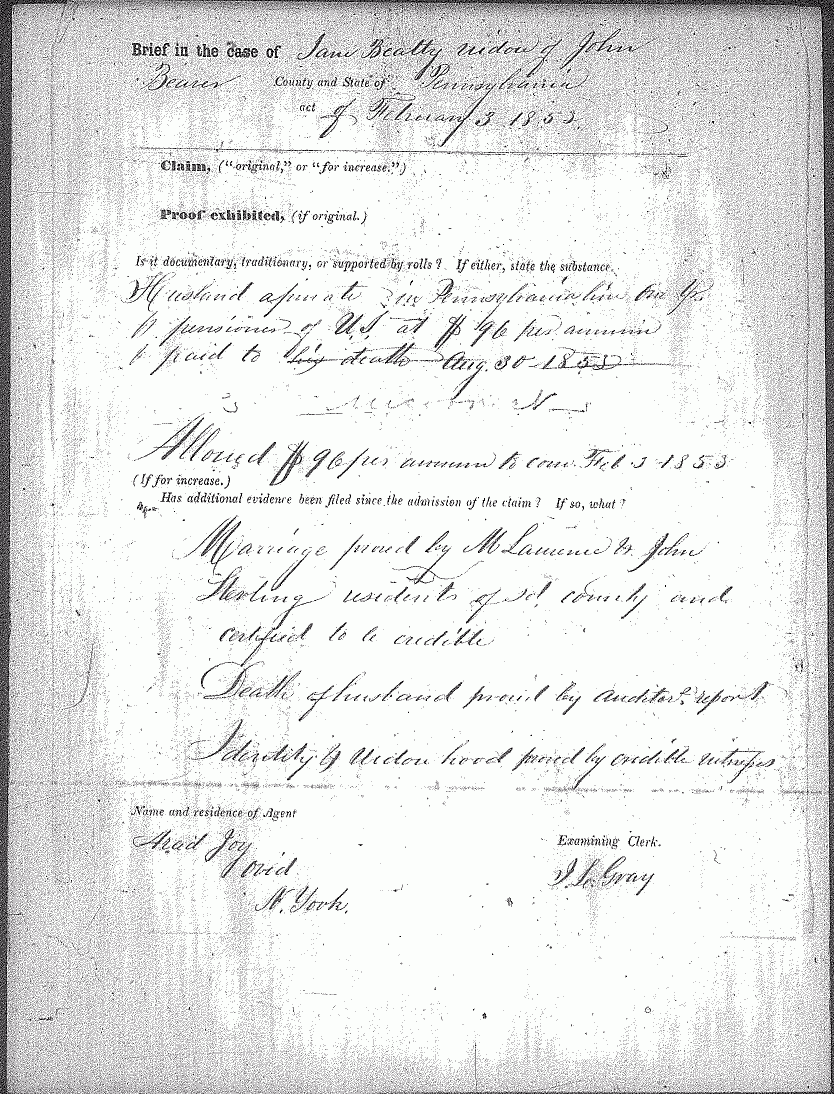 Brief in the case of Jane Beatty widow of John
Beaver County and State of Pennsylvania
act of February 3 1853
Claim, ("original," or "for increase.")
Proof exhibited, (if original.)
Is it documentary, traditionary, or supported by rolls? If either, state the substance.
Husband a private in Pennsylvania line One Yr.
& pensioner of U.S. at $96 per annum
& paid to his death Aug. 30 1853
Allowed $96 per annum to com Feb 3 1853
(If for increase.)
Has additional evidence been filed since the admission of the claim? If so, what?
Marriage proved by M Laurence & John
Sterling residents of sd. county and
certified to be credible
Death of husband proved by auditors report
Identity & Widow hood proved by credible witnesses
Name and residence of Agent
Arad Joy
Ovid
N. York.
Examining Clerk.
J. L. Gray